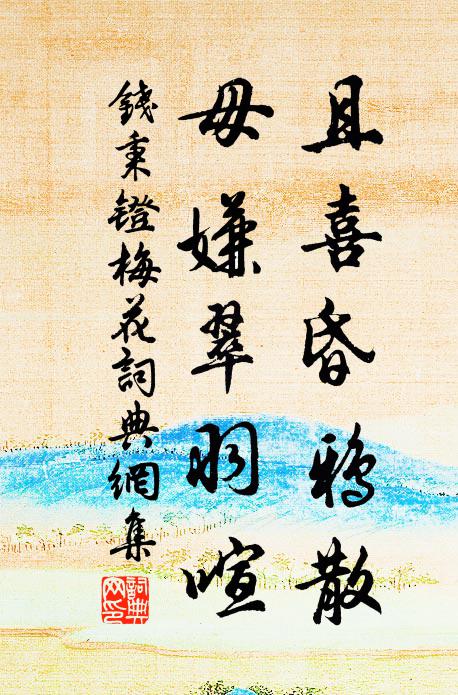 且喜昏鴉散
毋嫌翠羽喧
錢秉鐙梅花詞典網集